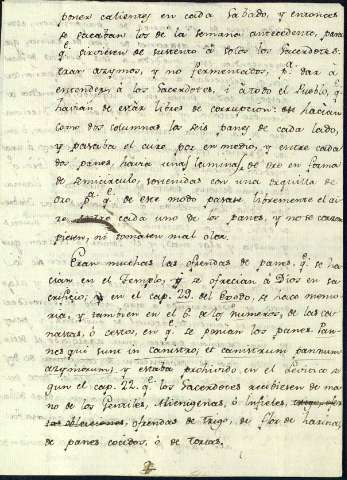 poner calientes en cada Sabado, y entonces
se sacaban los de la semana antecedente, para
q.^e sirviesen de sustento à solos los Sacerdotes:
eran azymos, y no fermentados, p.^a dar à
entender à los Sacerdotes, i à todo el Pueblo, q.^e
havian de estàr libres de corrupcion: se hacian
como dos columnas los seis panes de cada lado,
y passaba el curo por en medio, y entre cada
dos panes, havia unas laminas de oro en forma
de semicirculo, sostenidas con una orquilla de
oro p.^a q.^e de este modo passase libremente el ai-
re entre cada uno de los panes, y no se corrom-
piesen, ni tomasen mal olor.
Eran muchas las ofrendas de panes, q.^e se ha-
cian en el Templo, y se ofrecian à Dios en sa-
crificio; y en el cap. 29. del Exodo, se hace memo-
ria, y tambien en el 6. de los numeros, de las ca-
nastas, ò cestos, en q.^e se ponian los panes (
nes qui sunt in canistro, et canistrum panum
azymorum) y estaba prohivido en el Levitico se-
gun el cap. 22. q.^e los Sacerdotes recibiesen de ma-
no de los Gentiles, Alienigenas, ò Infieles,
las oblaciones, ofrendas de trigo, de flor de harina,
de panes cocidos, ò de tortas.